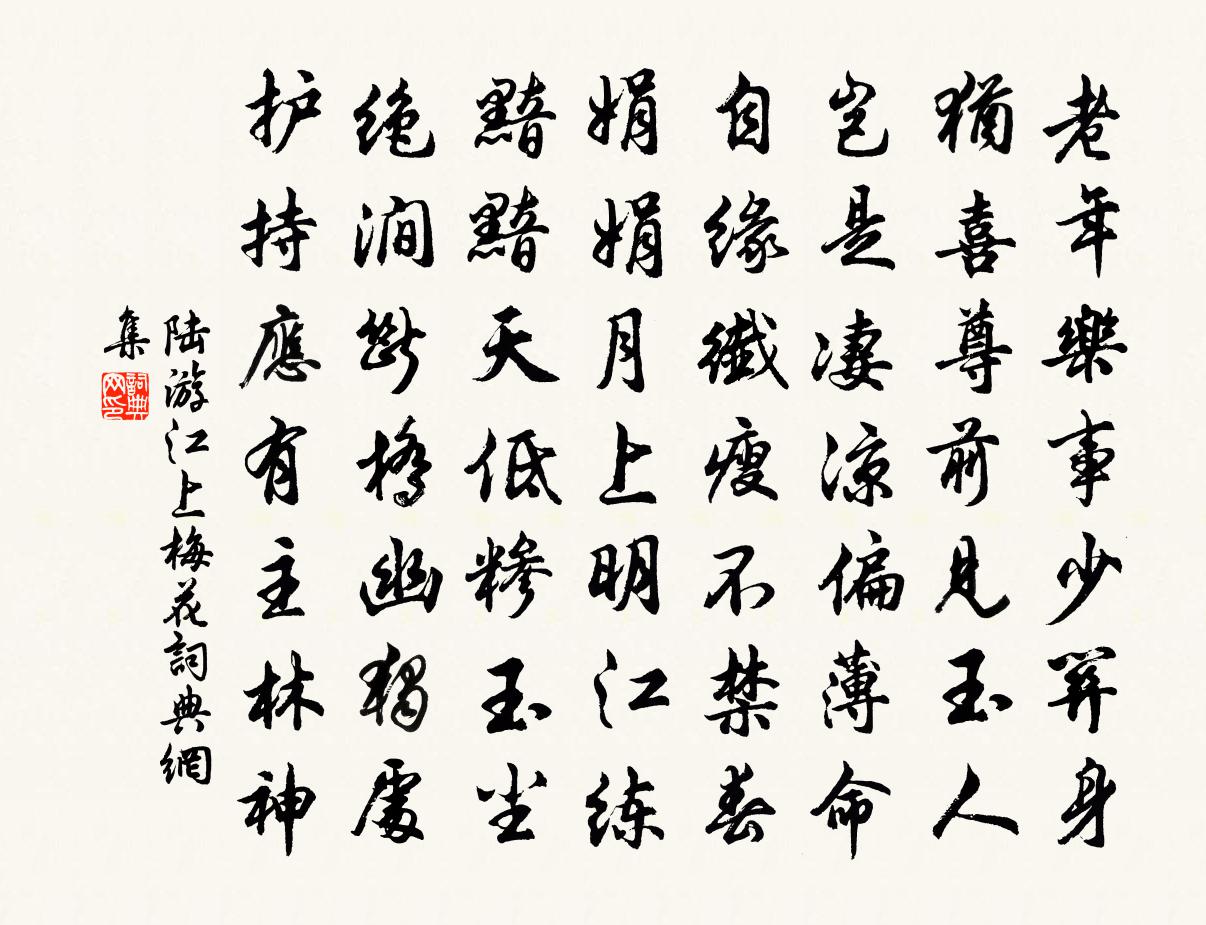 老年樂事少關身
猶喜尊前見玉人
豈是凄涼偏薄命
自緣纖瘦不禁春
娟娟月上明江练
黯黯天低糝玉尘
绝澗斷橋幽獨處
护持應有主林神
陆游江上梅花詞典網
集
詞典网印